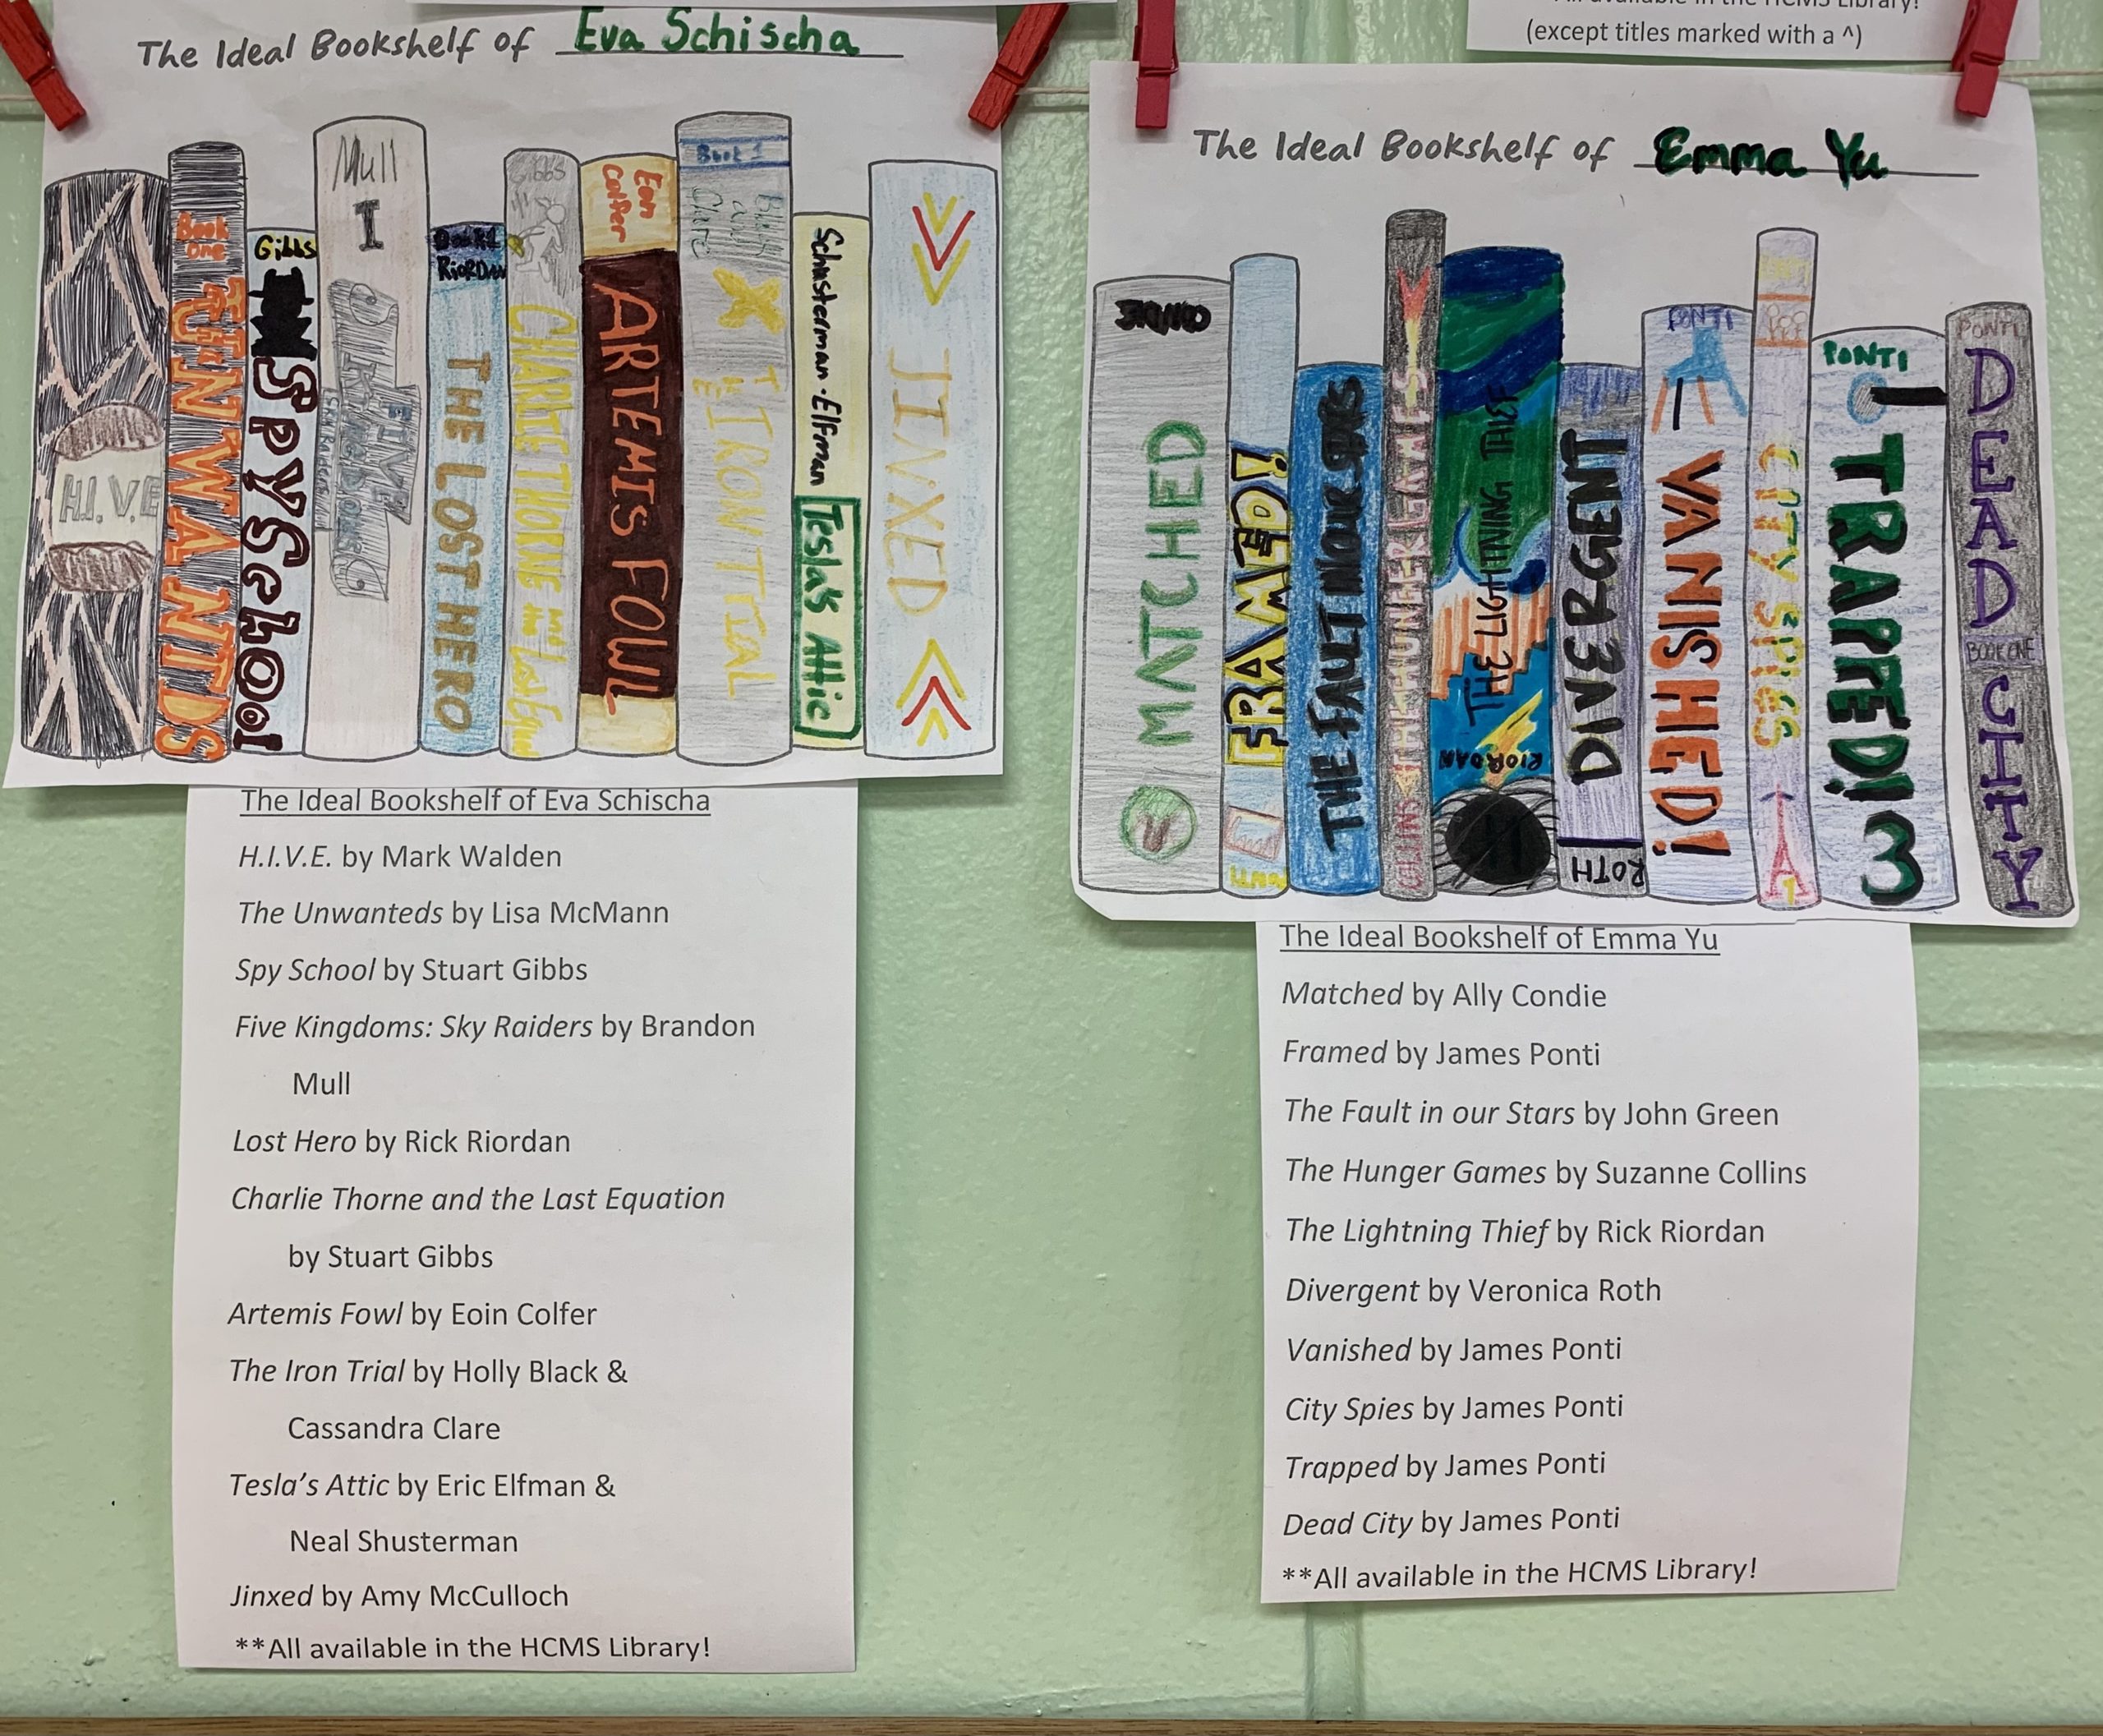 The Ideal Bookshelf of Eva Schischa
H.I.V.E
Book one
UNWANTEDS
Gibbs
Spy School
Mull
I
FIVE KINGDOMS
Book 1
RIORDAN
THE LOST HERO
Gibbs
CHARLIE THORNE and the Last Equation
Eoin Colfer
ARTEMIS FOWL
Book 1
Black and Clare
THE IRON TRIAL
Schusterman-Elfman
Tesla's Attic
JINXED
The Ideal Bookshelf of Eva Schischa
H.I.V.E. by Mark Walden
The Unwanteds by Lisa McMann
Spy School by Stuart Gibbs
Five Kingdoms: Sky Raiders by Brandon
Mull
Lost Hero by Rick Riordan
Charlie Thorne and the Last Equation
by Stuart Gibbs
Artemis Fowl by Eoin Colfer
The Iron Trial by Holly Black &
Cassandra Clare
Tesla's Attic by Eric Elfman &
Neal Shusterman
Jinxed by Amy McCulloch
**All available in the HCMS Library!
All available in the HCMS Library!
(except titles marked with a ^)
The Ideal Bookshelf of Emma Yu
CONDIE
MATCHED
FRAMED!
PONTI
THE FAULT IN OUR STARS
THE HUNGER GAMES
COLLINS
THE LIGHTNING THIEF
RIORDAN
DIVERGENT
ROTH
PONTI
VANISHED!
CITY SPIES
1
PONTI
TRAPPED! 3
PONTI
DEAD
BOOK ONE
CITY
The Ideal Bookshelf of Emma Yu
Matched by Ally Condie
Framed by James Ponti
The Fault in our Stars by John Green
The Hunger Games by Suzanne Collins
The Lightning Thief by Rick Riordan
Divergent by Veronica Roth
Vanished by James Ponti
City Spies by James Ponti
Trapped by James Ponti
Dead City by James Ponti
**All available in the HCMS Library!